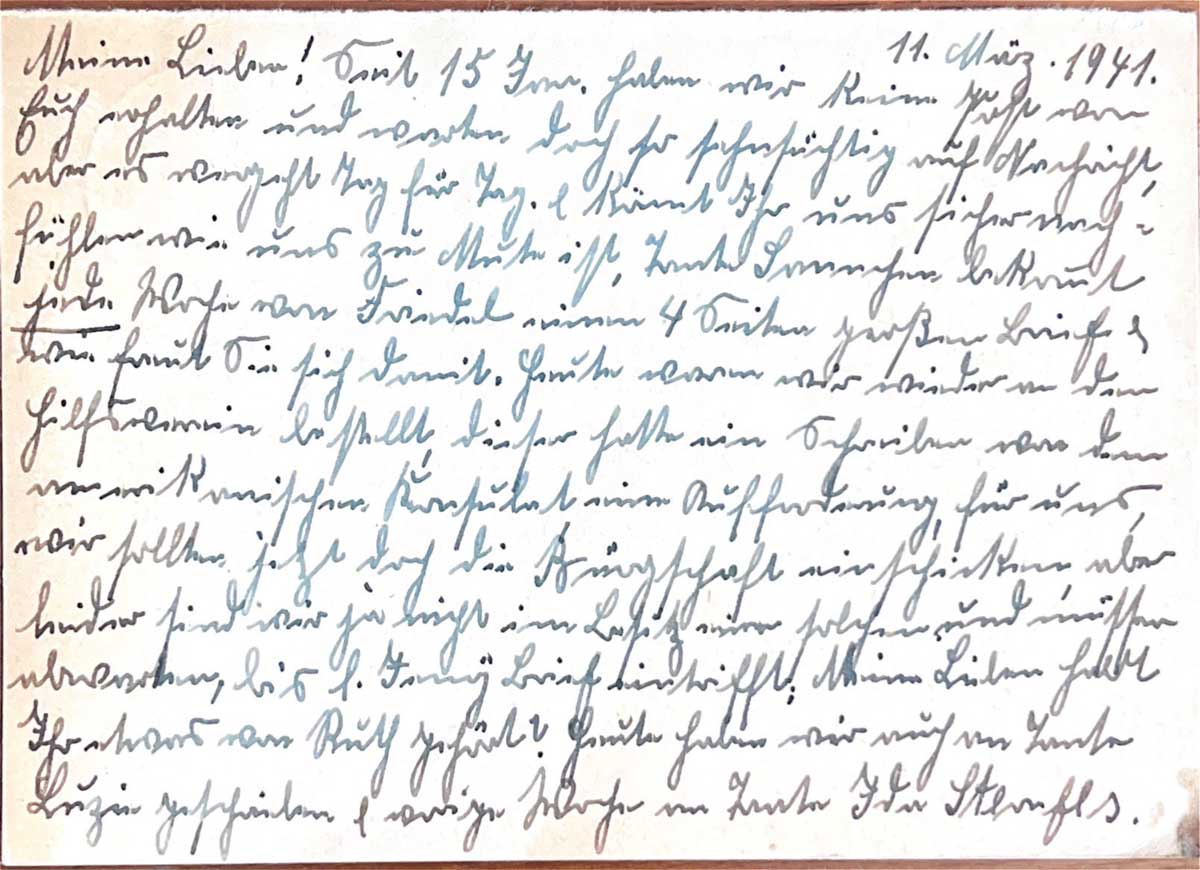 11. März. 1941.
Meine Lieben! Seit 15 Jan. haben wir keine Post von
Euch erhalten und warten doch so sehnsüchtig auf Nachricht,
aber es vergeht Tag für Tag. & könnt Ihr uns sicher nach=
fühlen wie uns zu Mute ist, Tante Sannchen bekomt
jede Woche von Friedel einen 4 Seiten großen Brief &
wie freut Sie sich damit. Heute waren wir wieder an den
Hilfsverein bestellt, dieser hatte ein Schreiben von dem
amerikanischen Konsulat eine Aufforderung, für uns,
wir sollten jetzt doch die Bürgschaft einschicken, aber
leider sind wir ja nicht im Besitz einer solchen und müssen
abwarten, bis l. Jenny Brief eintrifft; Meine Lieben habt
Ihr etwas von Ruth gehört? Heute haben wir auch an Tante
Luzie geschrieben & vorige Woche an Tante Ida